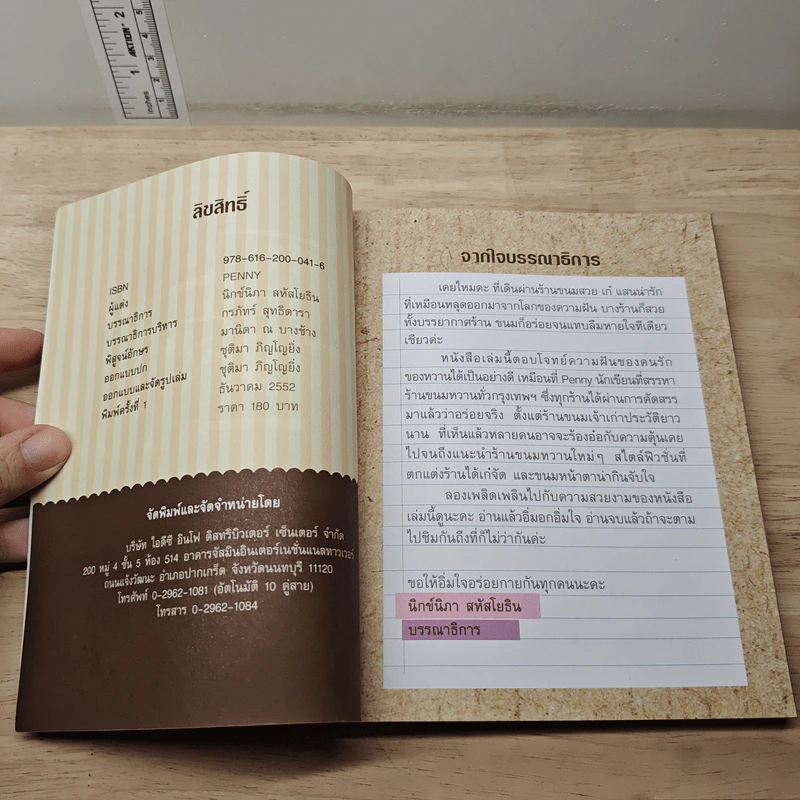 AKTION
inches
ลิขสิทธิ์
ISBN 978-616-200-041-6
ผู้แต่ง PENNY
บรรณาธิการ นิกข์นิภา สหัสโยธิน
บรรณาธิการบริหาร กรภัทร์ สุทธิดารา
พิสูจน์อักษร มานิดา ณ บางช้าง
ออกแบบปก ชุติมา ภิญโญยิ่ง
ออกแบบและจัดรูปเล่ม ชุติมา ภิญโญยิ่ง
พิมพ์ครั้งที่ 1 ธันวาคม 2552
ราคา 180 บาท
จัดพิมพ์และจัดจำหน่ายโดย
บริษัท ไอดีซี อินโฟ ดิสทริบิวเตอร์ เซ็นเตอร์ จำกัด
200 หมู่ 4 ชั้น 5 ห้อง 514 อาคารจัสมินอินเตอร์เนชั่นแนลทาวเวอร์
ถนนแจ้งวัฒนะ อำเภอปากเกร็ด จังหวัดนนทบุรี 11120
โทรศัพท์ 0-2962-1081 (อัตโนมัติ 10 คู่สาย)
โทรสาร 0-2962-1084
จากใจบรรณาธิการ
เคยไหมคะ ที่เดินผ่านร้านขนมสวย เก๋ แสนน่ารัก
ที่เหมือนหลุดออกมาจากโลกของความฝัน บางร้านก็สวย
ทั้งบรรยากาศร้าน ขนมก็อร่อยจนแทบลืมหายใจทีเดียว
เชียวค่ะ
หนังสือเล่มนี้ตอบโจทย์ความฝันของคนรัก
ของหวานได้เป็นอย่างดี เหมือนที่ Penny นักเขียนที่สรรหา
ร้านขนมหวานทั่วกรุงเทพฯ ซึ่งทุกร้านได้ผ่านการคัดสรร
มาแล้วว่าอร่อยจริง ตั้งแต่ร้านขนมเจ้าเก่าประวัติยาว
นาน ที่เห็นแล้วหลายคนอาจจะร้องอ๋อกับความคุ้นเคย
ไปจนถึงแนะนำร้านขนมหวานใหม่ๆ สไตล์ฟิวชั่นที่
ตกแต่งร้านได้เก๋จัด และขนมหน้าตาน่ากินจับใจ
ลองเพลิดเพลินไปกับความสวยงามของหนังสือ
เล่มนี้ดูนะคะ อ่านแล้วอิ่มอกอิ่มใจ อ่านจบแล้วถ้าจะตาม
ไปชิมกันถึงที่ก็ไม่ว่ากันค่ะ
ขอให้อิ่มใจอร่อยกายกันทุกคนนะคะ
นิกข์นิภา สหัสโยธิน
บรรณาธิการ